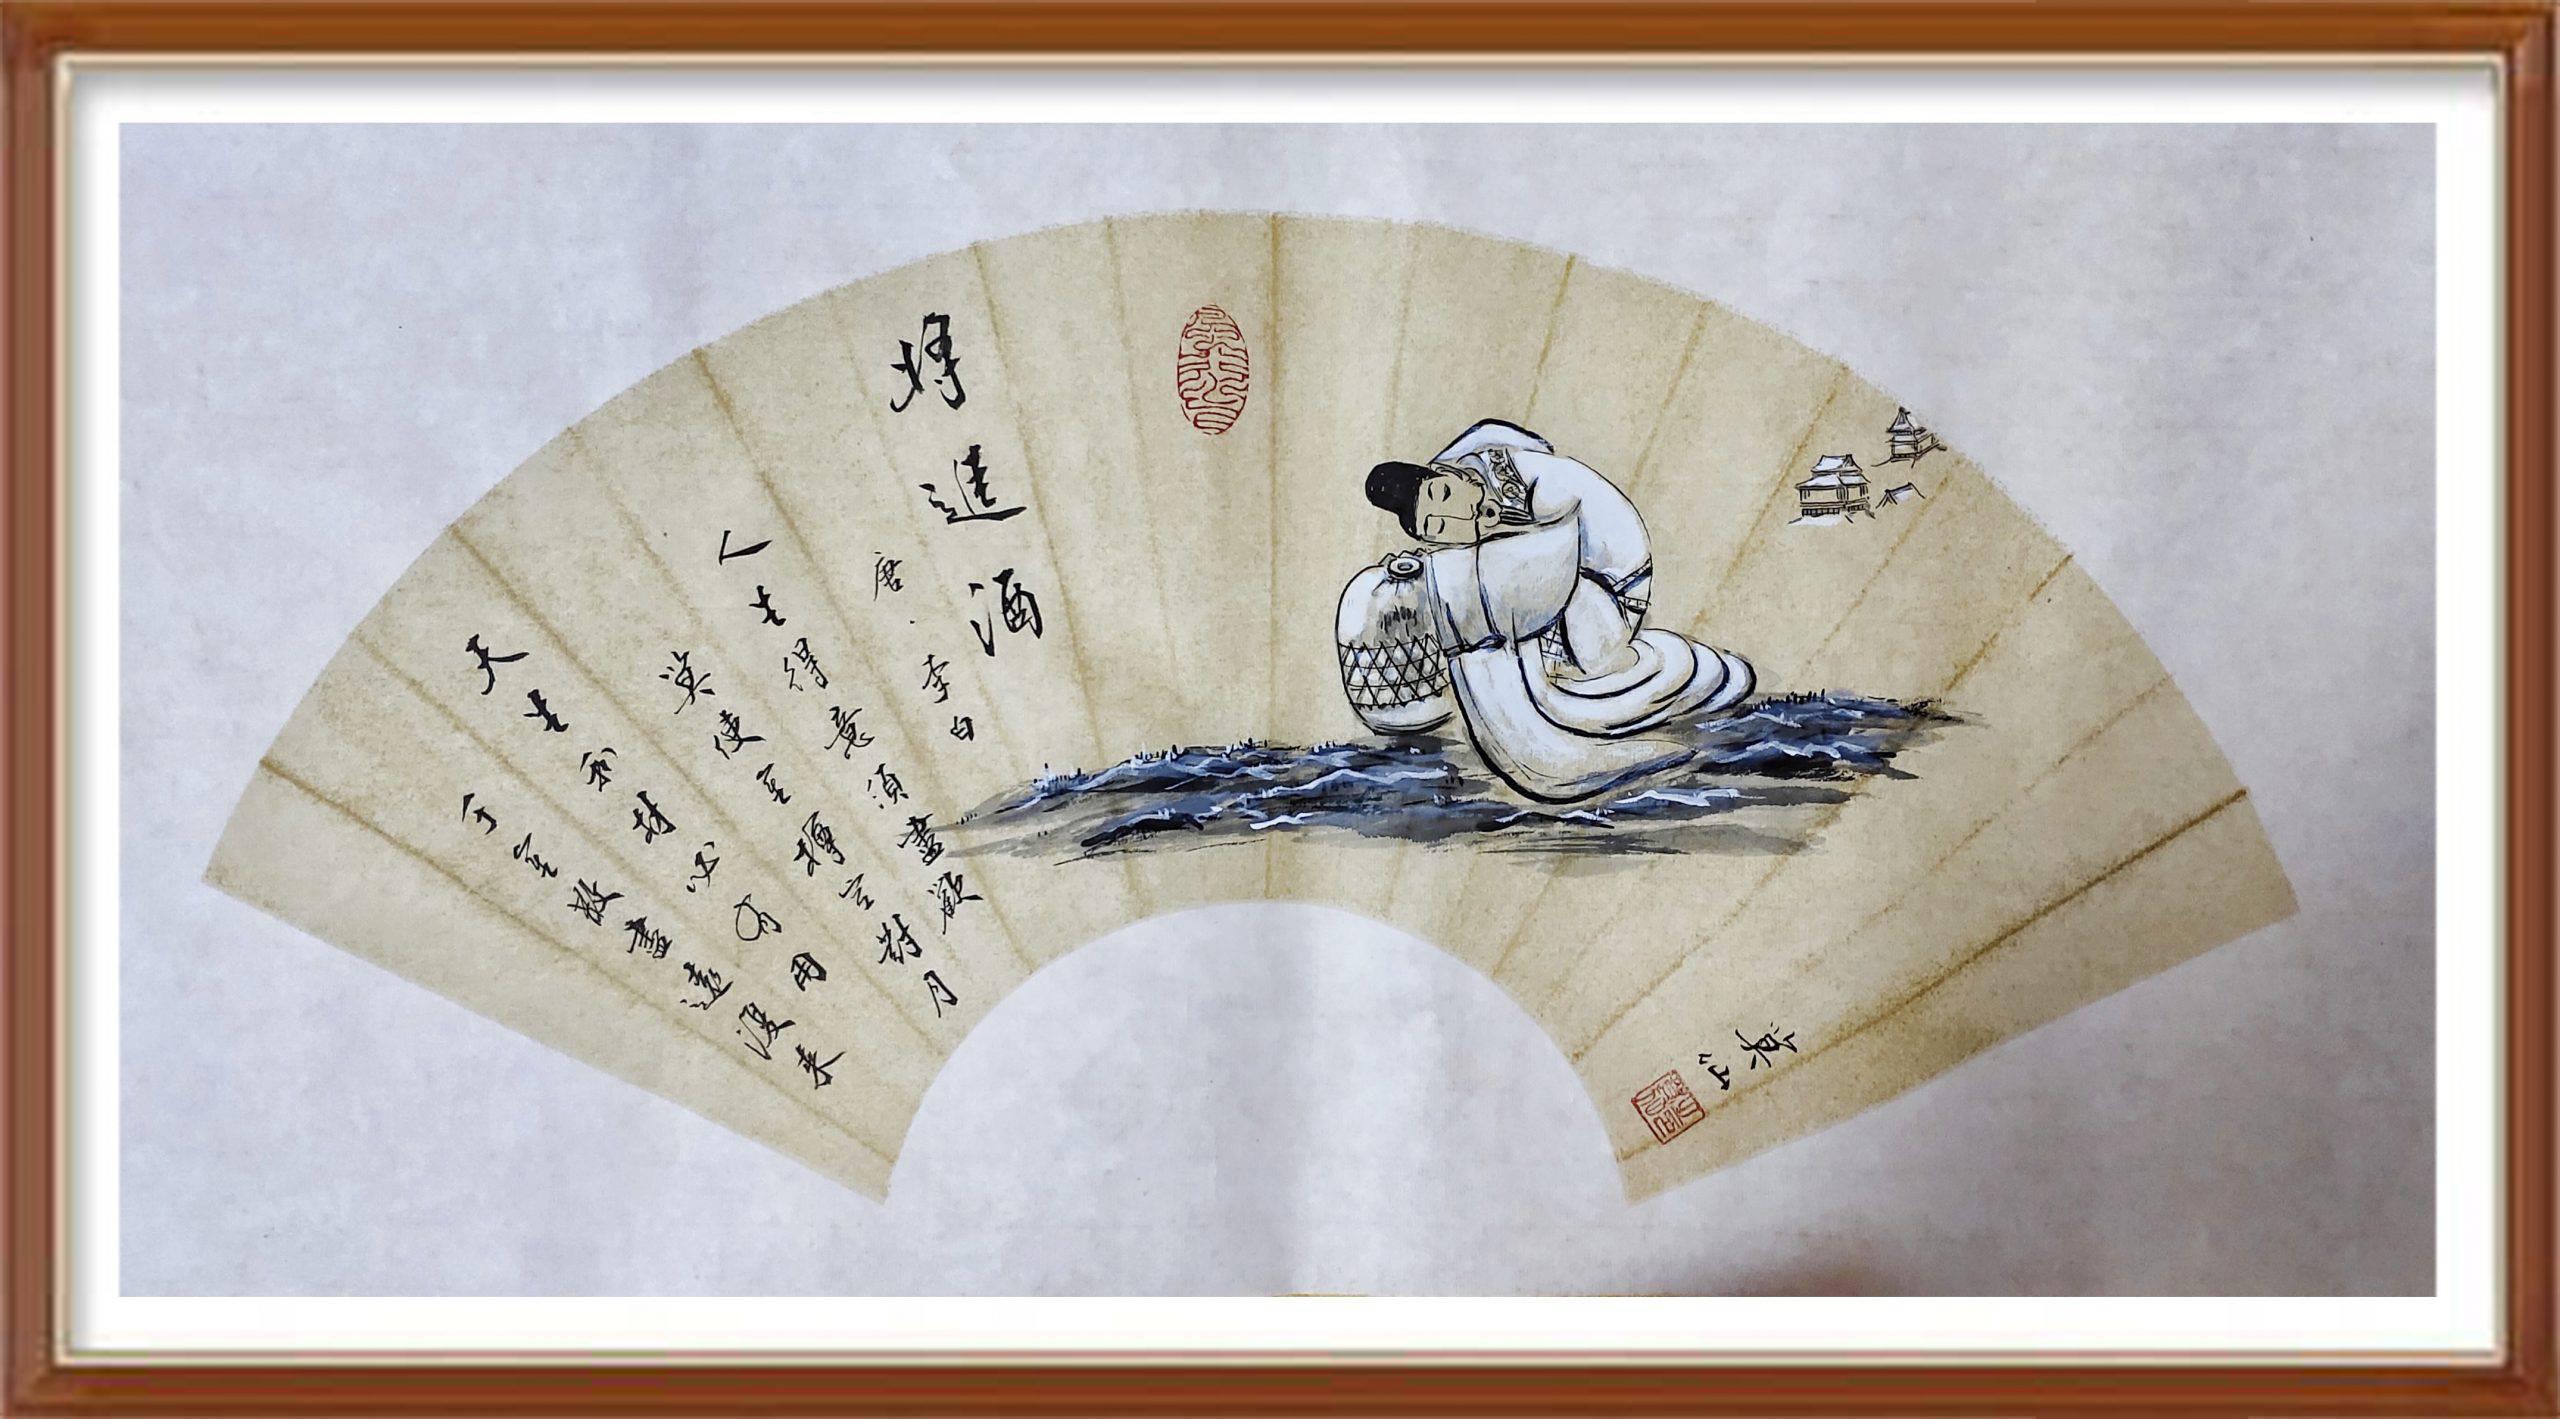 将進酒
唐·李白
人生得意須盡歡
莫使金樽空對月
天生我材必有用
千金散盡還復来